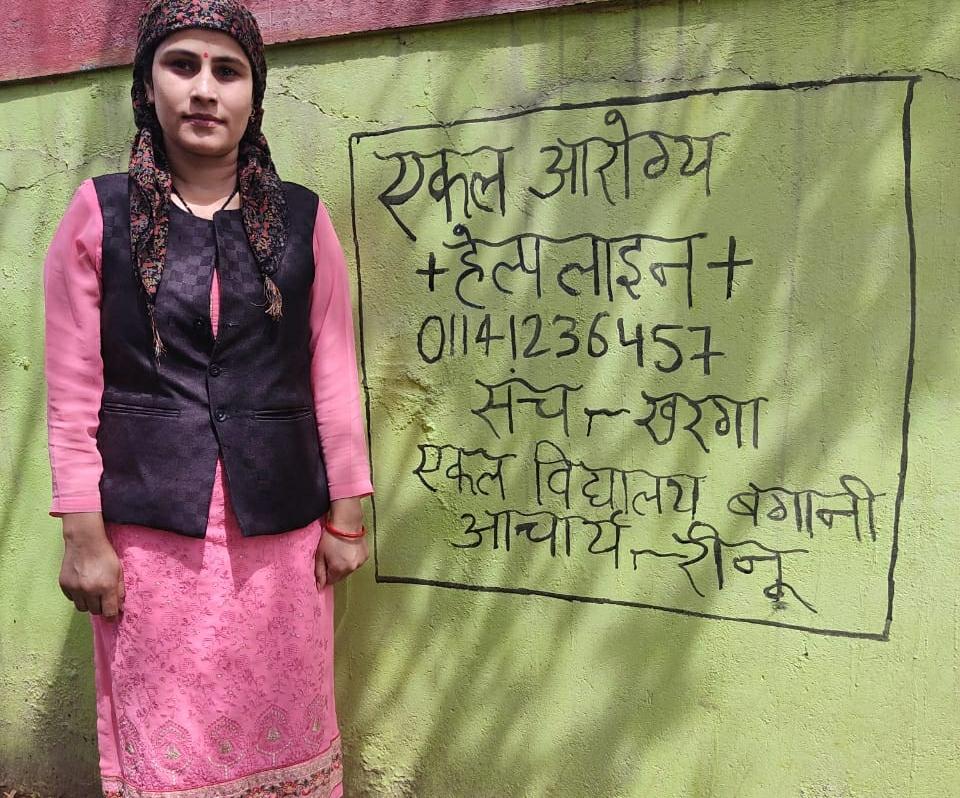 एकल आरोग्य
+हेल्प लाइन+
01141236457
संच - खरगा
एकल विद्यालय बगानी
आचार्य - रीनू